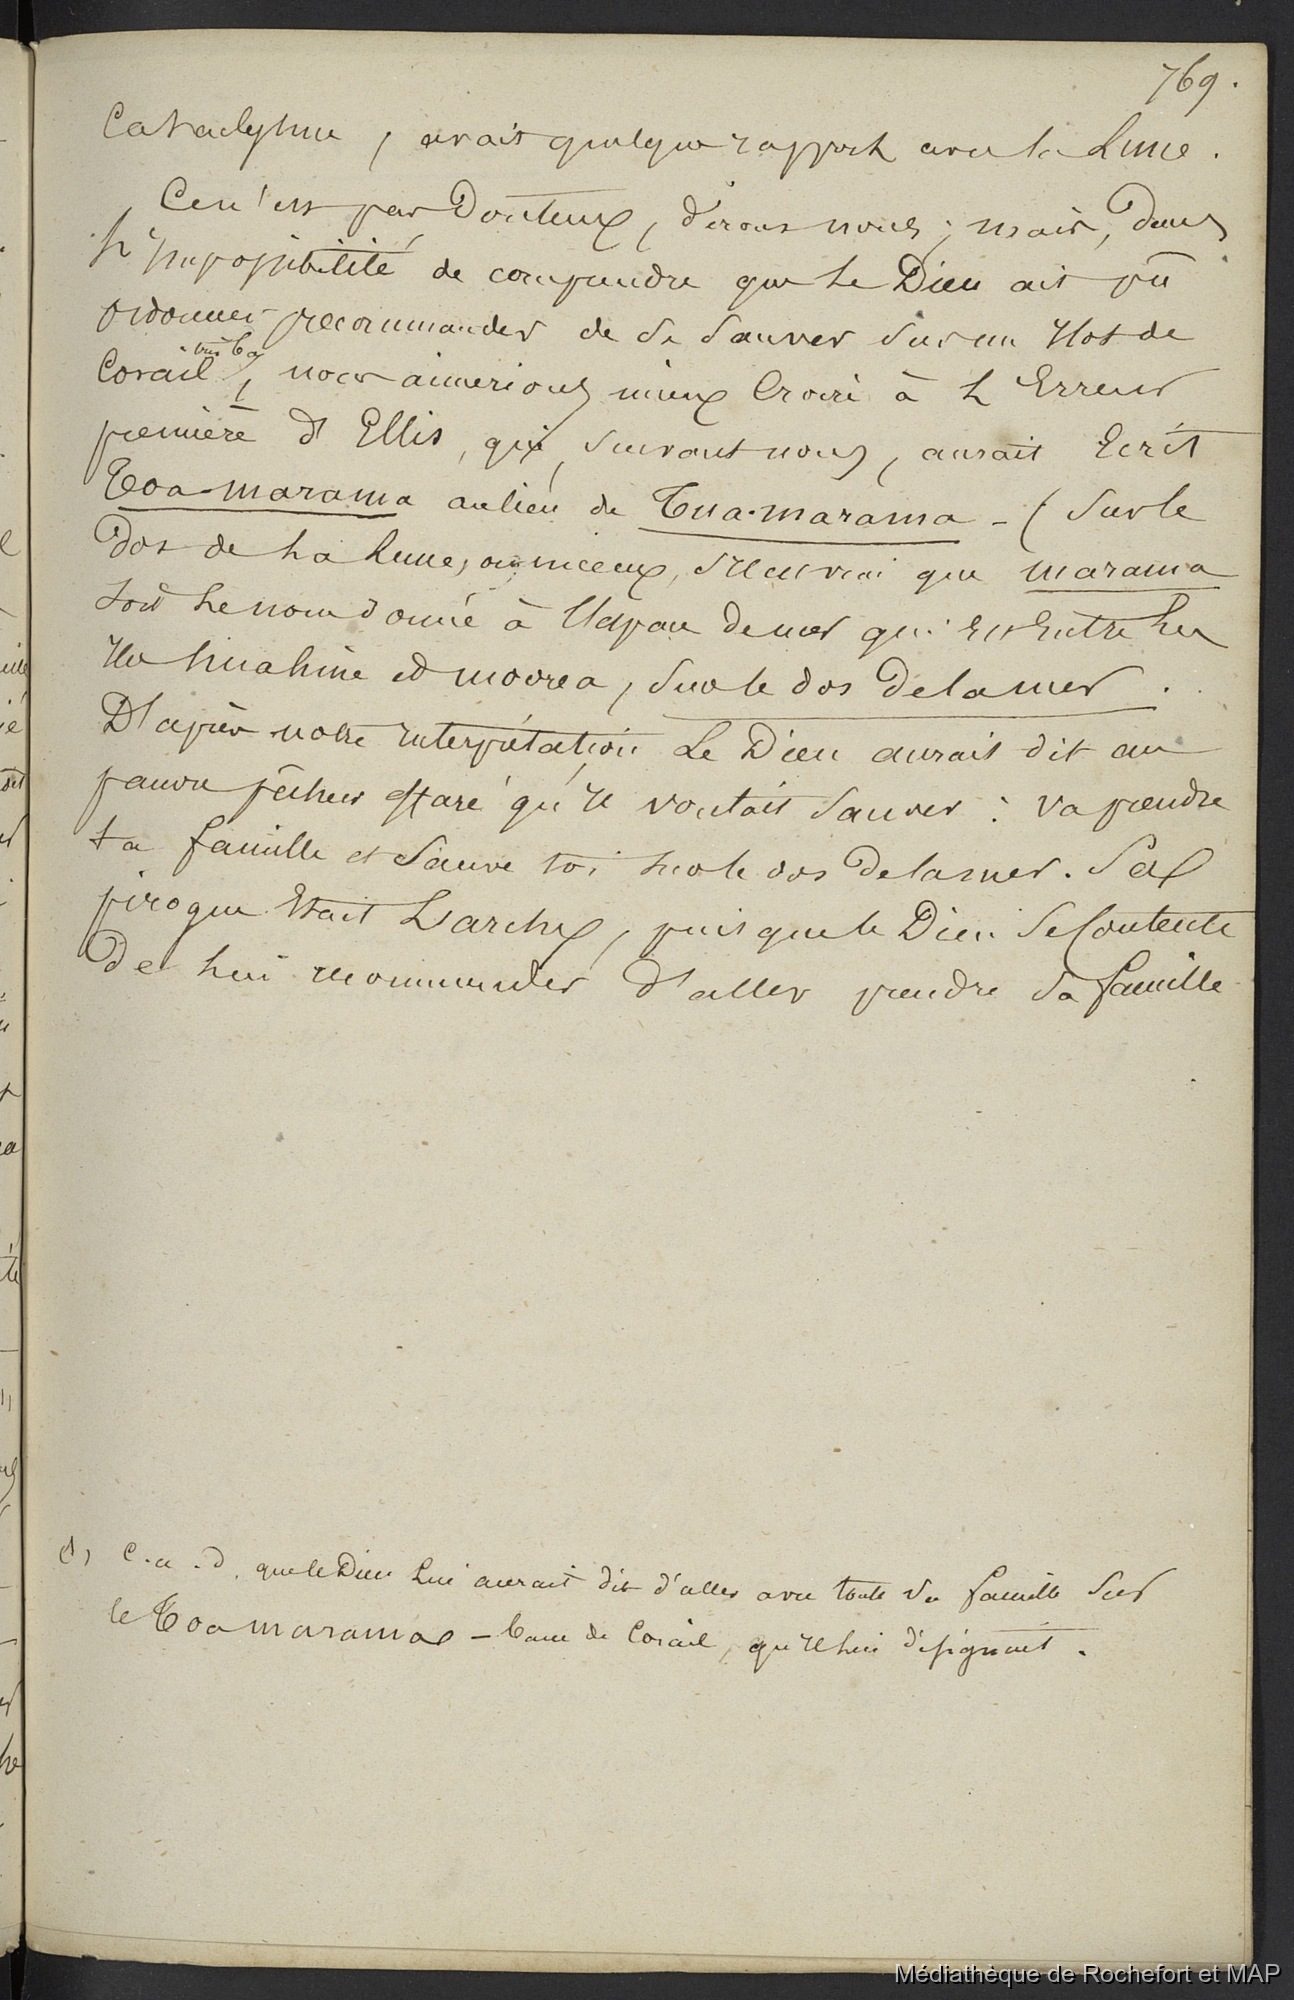 769.
Cataclysme, avait quelque rapport avec la Lune.
Ce n'est pas Douteux, dirons nous; mais, dans
L'impossibilité de comprendre que le Dieu ait pû
ordonner recommander de se sauver sur un Ilot de
très bas
Corail, nous aimerions mieux Croire à L'Erreur
première d'Ellis, qui, suivant nous, aurait Ecrit
Toa-marama au lieu de Tua-marama - (sur le
dos de la lune, ou mieux, s'il est vrai que marama
soit le nom donné à l'Espace de mer qui Est Entre les
Iles huahine et moorea, sur le dos de la mer.
D'après notre interprétation Le Dieu aurait dit au
pauvre pêcheur effaré qu'il voulait sauver: va prendre
ta famille et sauve toi sur le dos de la mer. Sa
pirogue Etait L'arche, puisque le Dieu se Contente
de lui recommander d'aller prendre sa famille
(1) C.a.d. que le Dieu Lui aurait dit d'aller avec toute sa famille sur
le Toa marama - banc de Corail, qu'il lui désignait.
Médiathèque de Rochefort et MAP